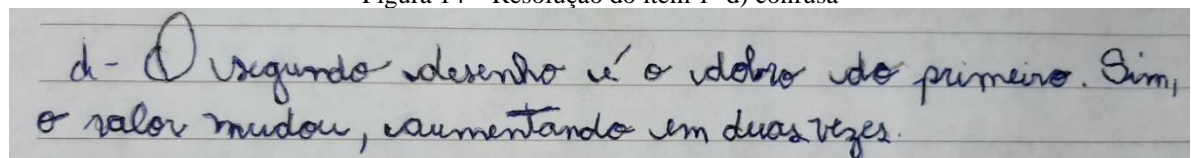 Figura 14 – Resolução do item 1- d) confusa
d- O segundo desenho é o dobro do primeiro. Sim,
o valor mudou, aumentando em duas vezes.